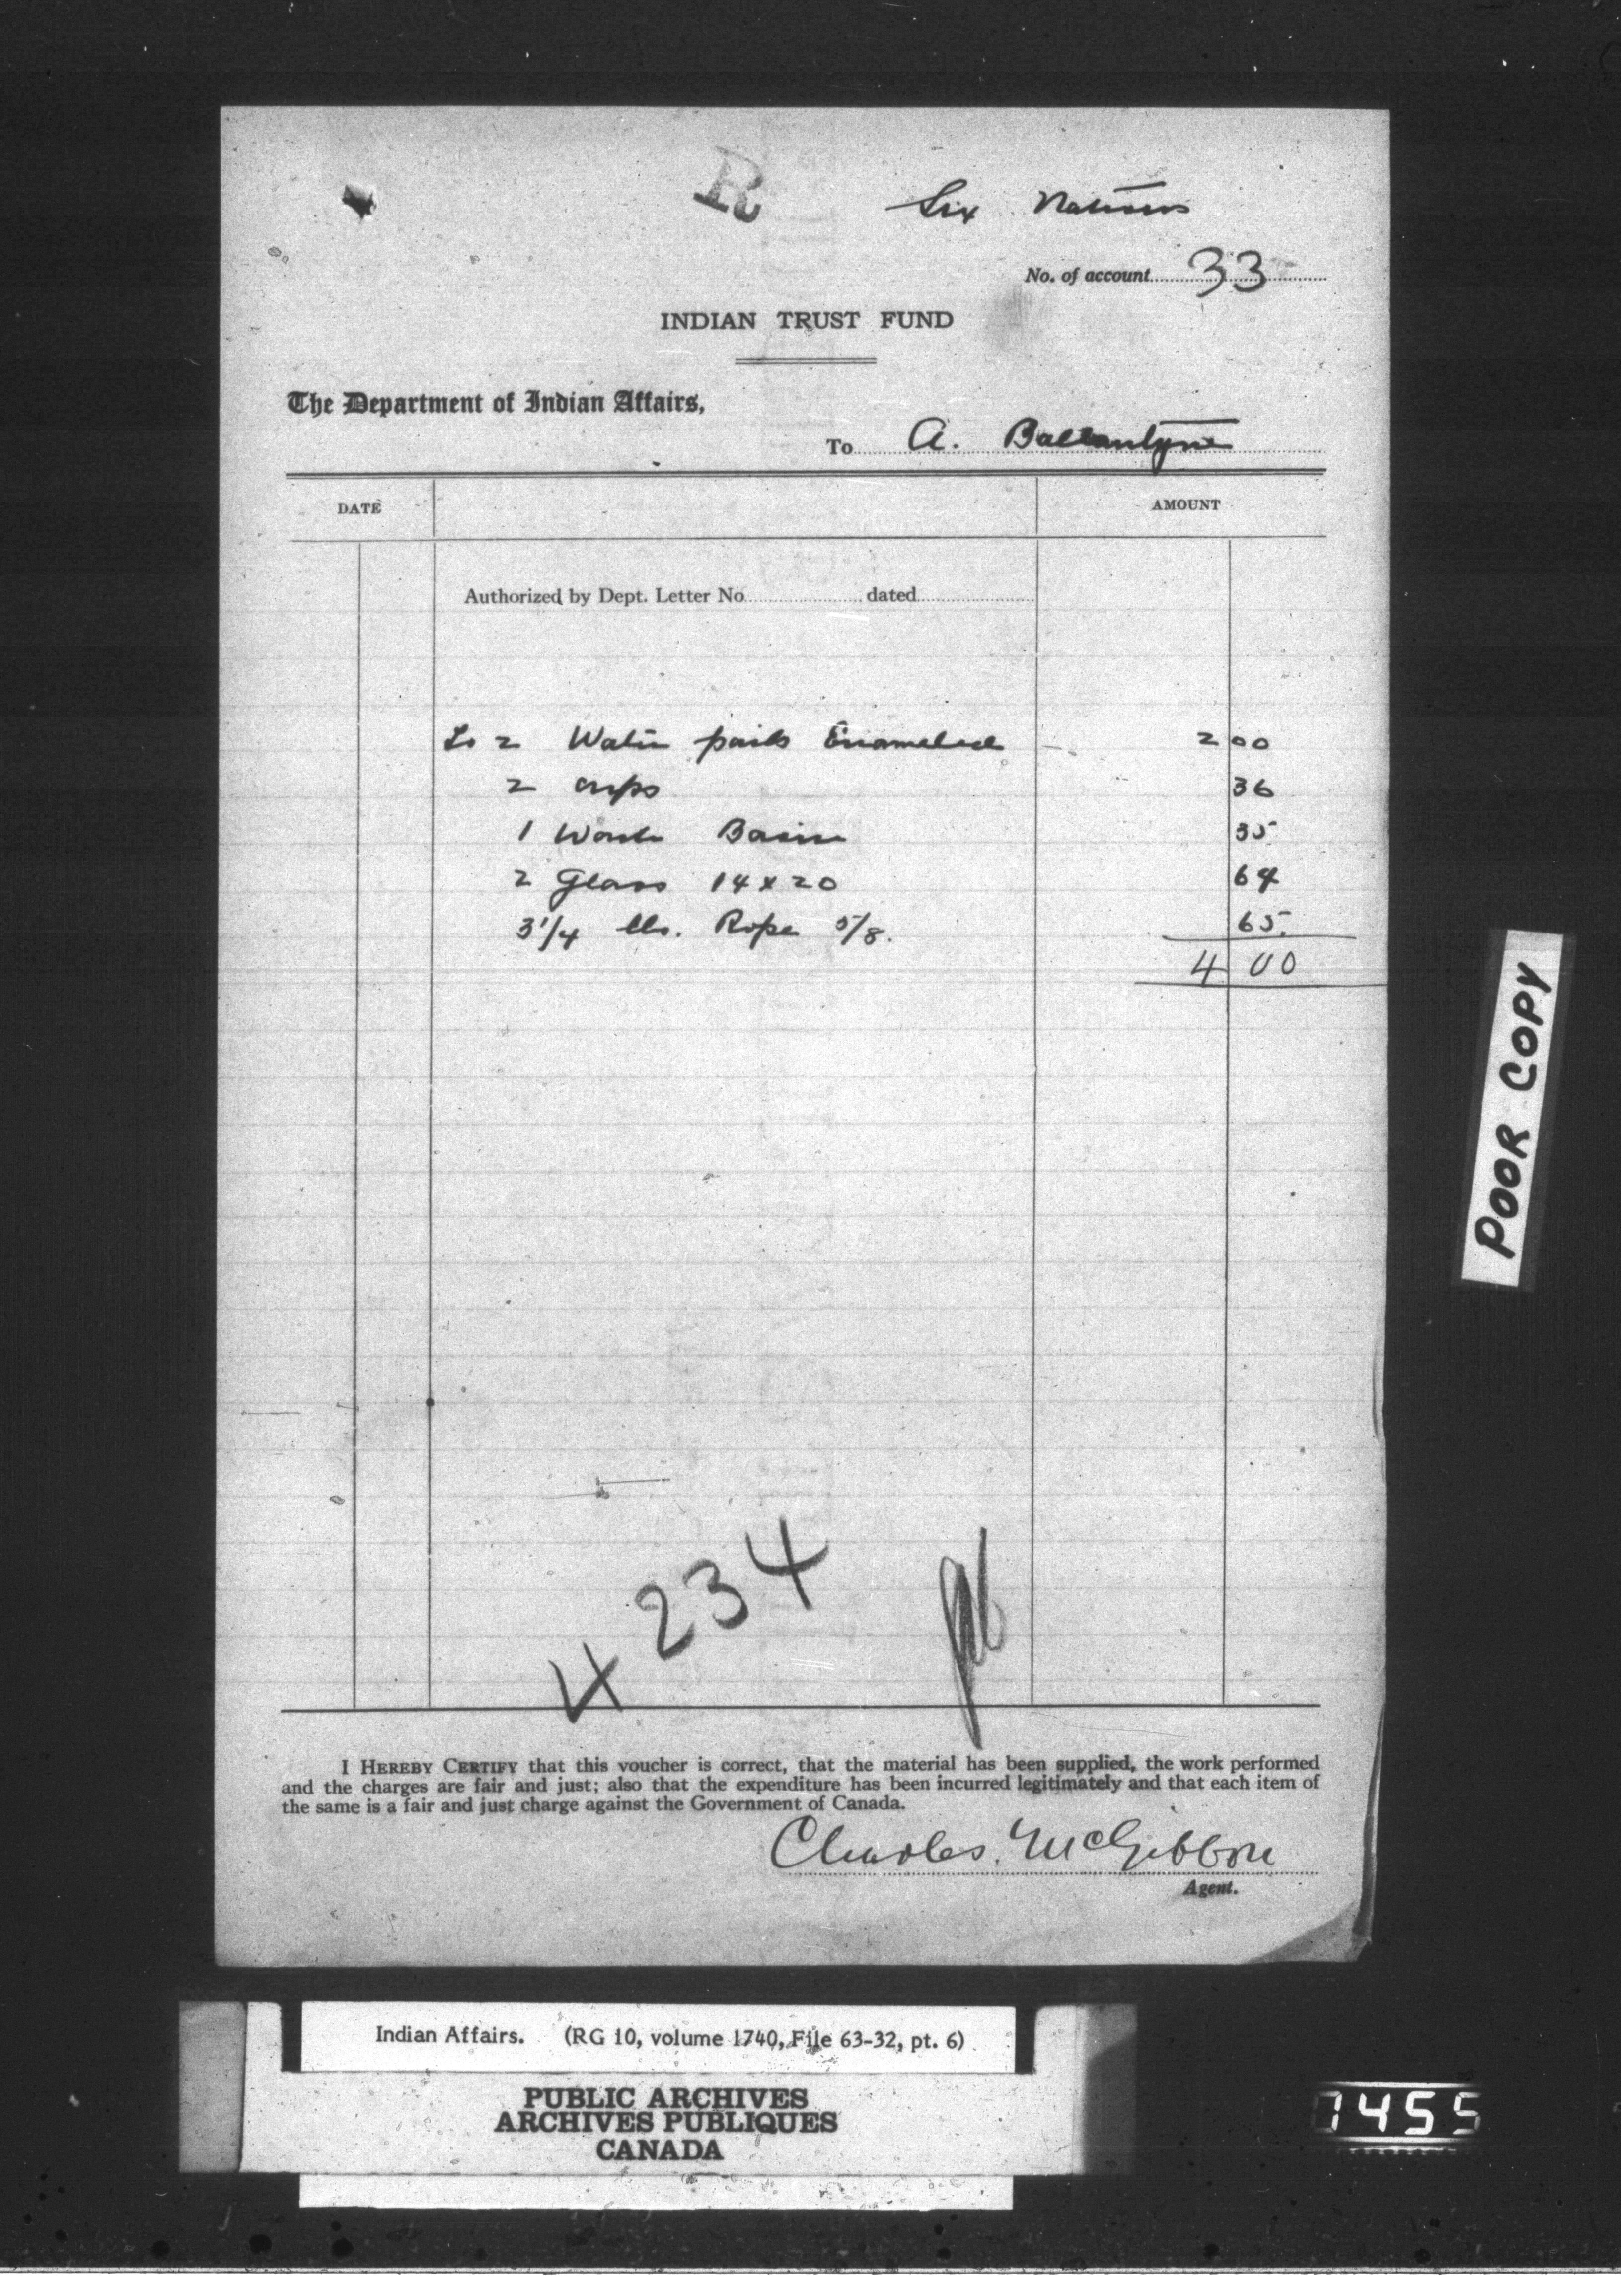 R
Six Nations
No. of account 33
INDIAN TRUST FUND
The Department of Indian Affairs,
To A. Ballantyne
DATE AMOUNT
Authorized by Dept. Letter No. dated
To 2 Water pails Enameled 2 00
2 cups 36
1 Wash Basin 35
2 Glass 14 x 20 64
3 1/4 lbs. Rope 5/8. 65.
4 00
4 234
I HEREBY CERTIFY that this voucher is correct, that the material has been supplied, the work performed
and the charges are fair and just; also that the expenditure has been incurred legitimately and that each item of
the same is a fair and just charge against the Government of Canada.
Charles McGibbon
Agent.
POOR COPY
Indian Affairs. (RG 10, volume 1740, File 63-32, pt. 6)
PUBLIC ARCHIVES
ARCHIVES PUBLIQUES
CANADA
7455